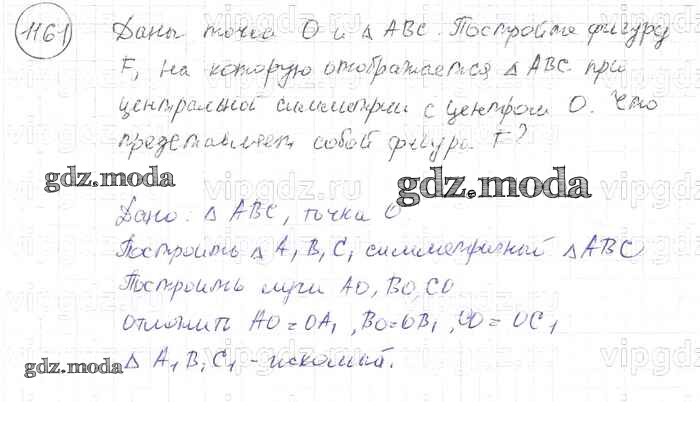 1161 Даны точка O и △ ABC. Постройте фигуру
F, на которую отображается △ ABC при
центральной симметрии с центром O. Что
представляет собой фигура F?
gdz.moda
gdz.moda
Дано: △ ABC, точка O
Построить △ A₁ B₁ C₁ симметричный △ ABC
Построить лучи AO, BO, CO
Отложить AO = OA₁, BO = OB₁, CO = OC₁
gdz.moda
△ A₁ B₁ C₁ - искомый.
gdz.moda
vipgdz.ru